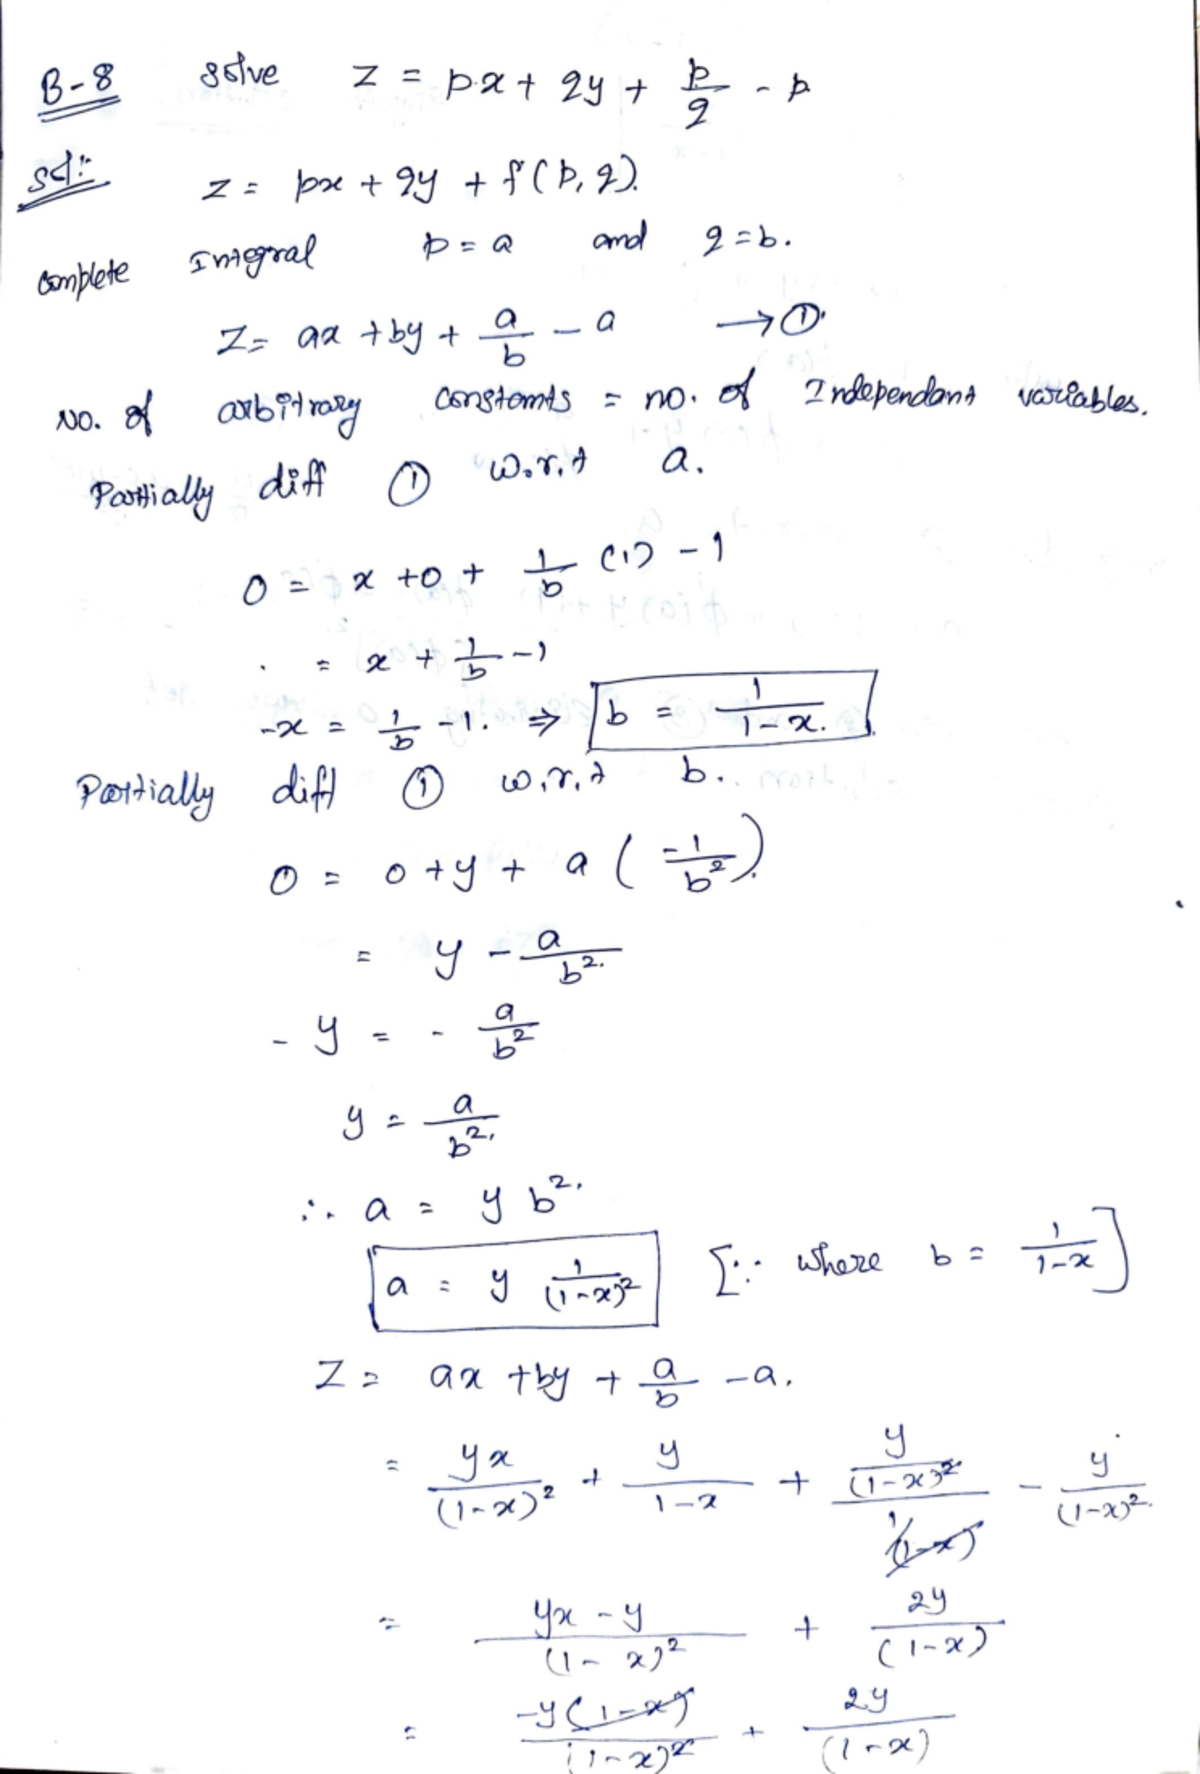 B-8 solve z = px + qy + p/q - p
Sol:-
z = px + qy + f(p, q).
Complete Integral p = a and q = b.
Z = ax + by + a/b - a → ①.
No. of arbitrary constants = no. of Independant variables.
Partially diff ① w.r.t a.
0 = x + 0 + 1/b (1) - 1
= x + 1/b - 1
-x = 1/b - 1. ⇒ b = 1/(1-x).
Partially diff ① w.r.t b.
0 = 0 + y + a (-1/b²).
= y - a/b².
- y = - a/b²
y = a/b².
∴ a = y b².
a = y 1/(1-x)² [∵ where b = 1/(1-x)]
Z = ax + by + a/b - a.
= yx/(1-x)² + y/(1-x) + (y/(1-x)²)/(1/(1-x)) - y/(1-x)².
= (yx - y)/(1-x)² + 2y/(1-x)
= -y(1-x)/(1-x)² + 2y/(1-x)